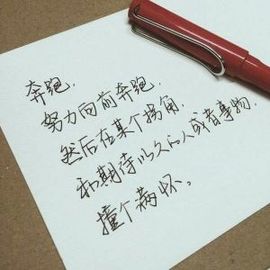 奔跑.
努力向前奔跑.
然后在某个拐角.
和期待以久的人或者事物.
撞个满怀。